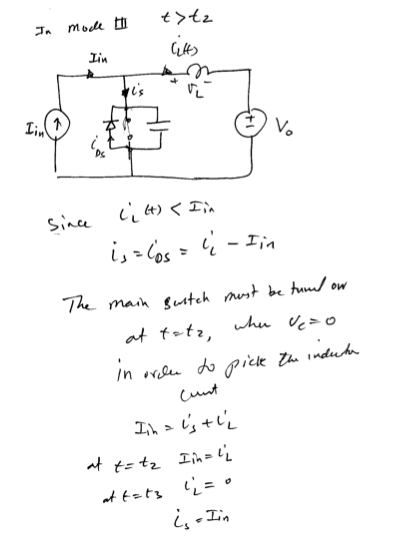 In mode III t > t2
Iin
iL(t)
+ vL -
is
Iin
iDs
Vo
Since iL(t) < Iin
is = iDs = iL - Iin
The main switch must be turned on
at t = t2, when Vc = 0
in order to pick the inductor
current
Iin = is + iL
at t = t2 Iin = iL
at t = t3 iL = 0
is = Iin